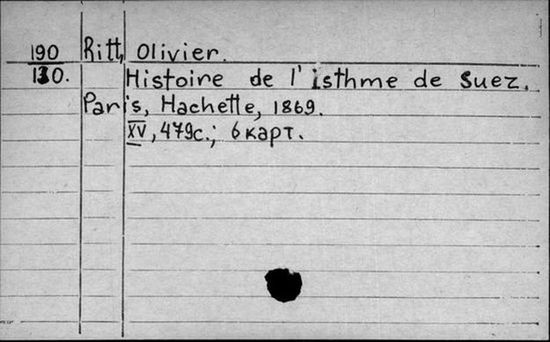 190 Ritt, Olivier.
130. Histoire de l'isthme de Suez.
Paris, Hachette, 1869.
XV, 479с.; 6 карт.